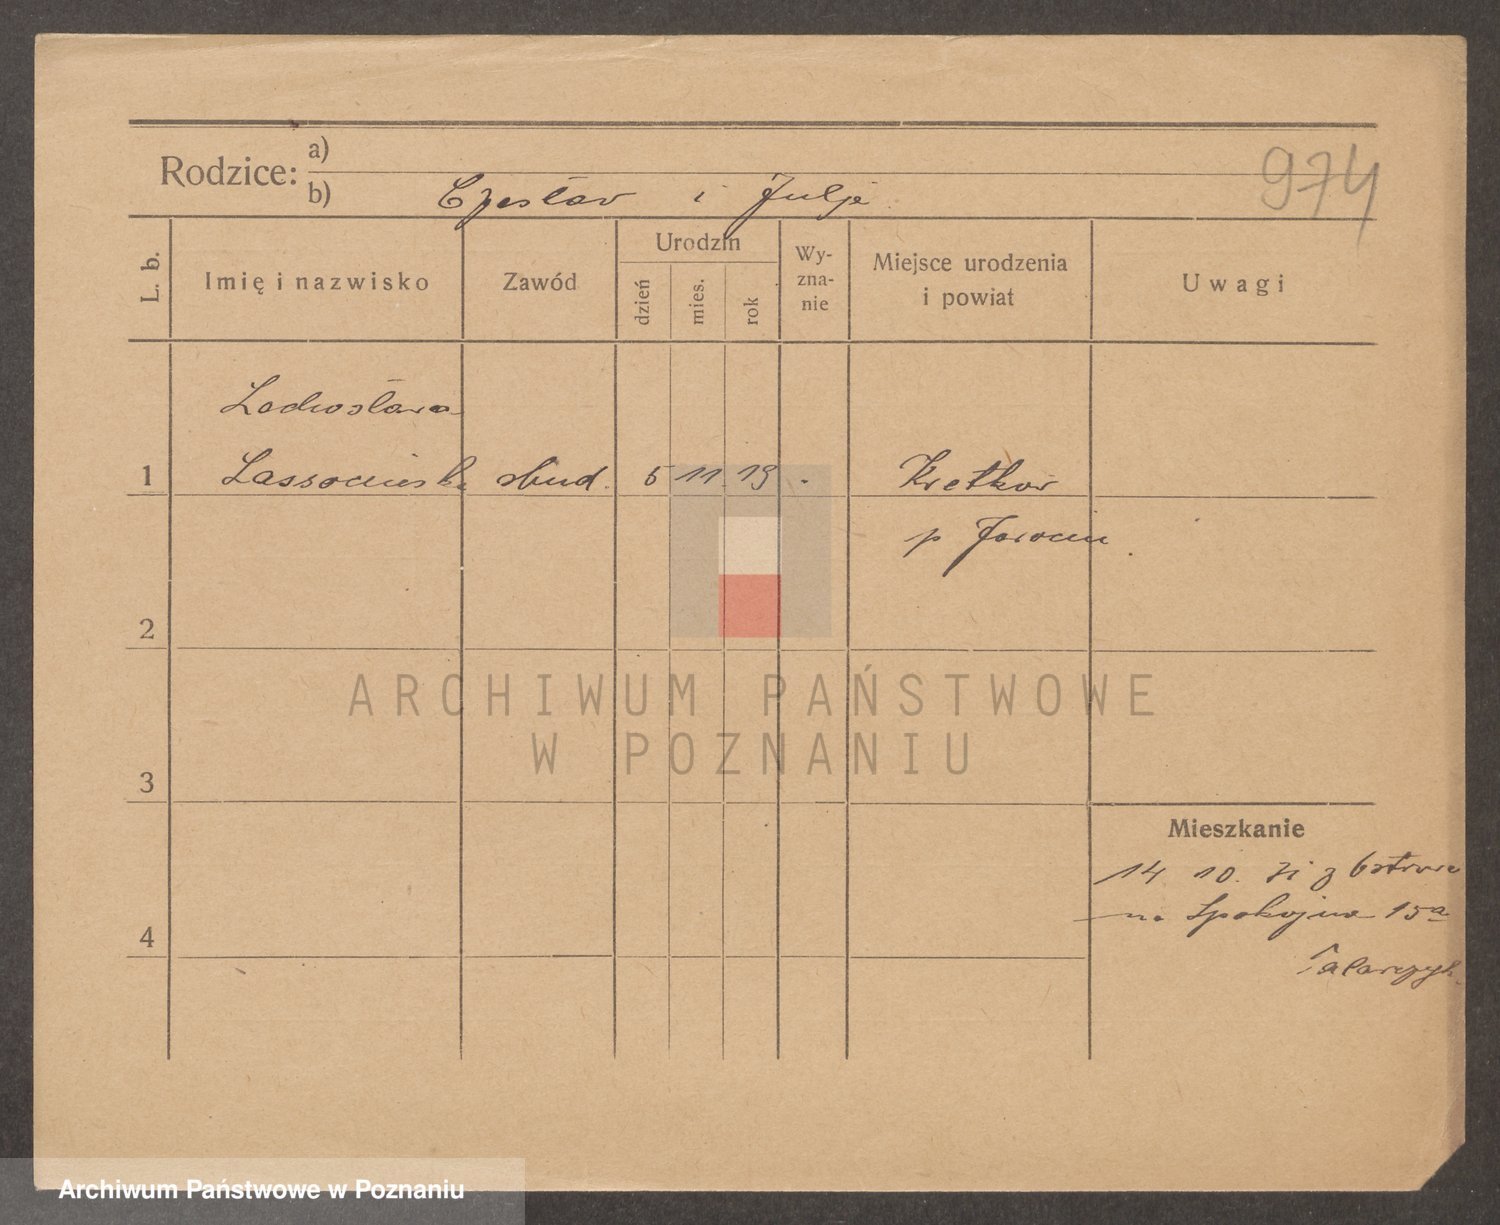 Rodzice: a)
b) Czesław i Julja
974
L. b.
Imię i nazwisko
Zawód
Urodzin
dzień
mies.
rok
Wy-
zna-
nie
Miejsce urodzenia
i powiat
Uwagi
Lechosława
1 Lassocińska stud. 5 11 19 Kretków
p Jarocin
2
3
4
Mieszkanie
14 10. z
na Spokojna 15a
Talarczyk
ARCHIWUM PAŃSTWOWE
W POZNANIU
Archiwum Państwowe w Poznaniu